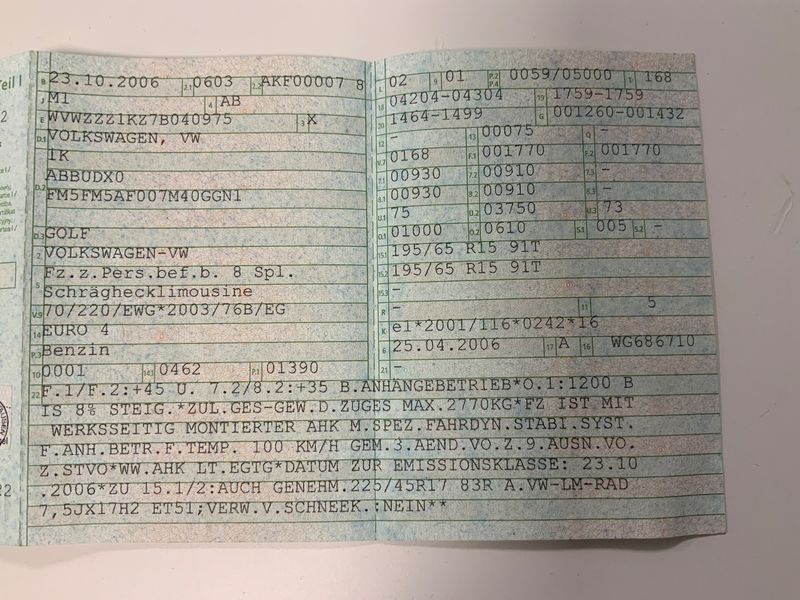 Teil I
B 23.10.2006 2.1 0603 2.2 AKF00007 8
J M1 4 AB
E WVWZZZ1KZ7B040975 3 X
D.1 VOLKSWAGEN, VW
1K
D.2 ABBUDX0
FM5FM5AF007M40GGN1
D.3 GOLF
2 VOLKSWAGEN-VW
5 Fz.z.Pers.bef.b. 8 Spl.
Schräghecklimousine
V.9 70/220/EWG*2003/76B/EG
14 EURO 4
P.3 Benzin
10 0001 14.1 0462 P.1 01390
L 02 9 01 P.2 P.4 0059/05000 T 168
18 04204-04304 19 1759-1759
20 1464-1499 G 001260-001432
12 - 13 00075 Q -
V.7 0168 F.1 001770 F.2 001770
7.1 00930 7.2 00910 7.3 -
8.1 00930 8.2 00910 8.3 -
U.1 75 U.2 03750 U.3 73
O.1 01000 O.2 0610 S.1 005 S.2 -
15.1 195/65 R15 91T
15.2 195/65 R15 91T
15.3 -
R - 11 5
K e1*2001/116*0242*16
6 25.04.2006 17 A 16 WG686710
21 -
22 F.1/F.2:+45 U. 7.2/8.2:+35 B.ANHÄNGEBETRIEB*O.1:1200 B
IS 8% STEIG.*ZUL.GES-GEW.D.ZUGES MAX.2770KG*FZ IST MIT
WERKSSEITIG MONTIERTER AHK M.SPEZ.FAHRDYN.STABI.SYST.
F.ANH.BETR.F.TEMP. 100 KM/H GEM.3.AEND.VO.Z.9.AUSN.VO.
Z.STVO*WW.AHK LT.EGTG*DATUM ZUR EMISSIONSKLASSE: 23.10
.2006*ZU 15.1/2:AUCH GENEHM.225/45R17 83R A.VW-LM-RAD
7,5JX17H2 ET51;VERW.V.SCHNEEK.:NEIN**